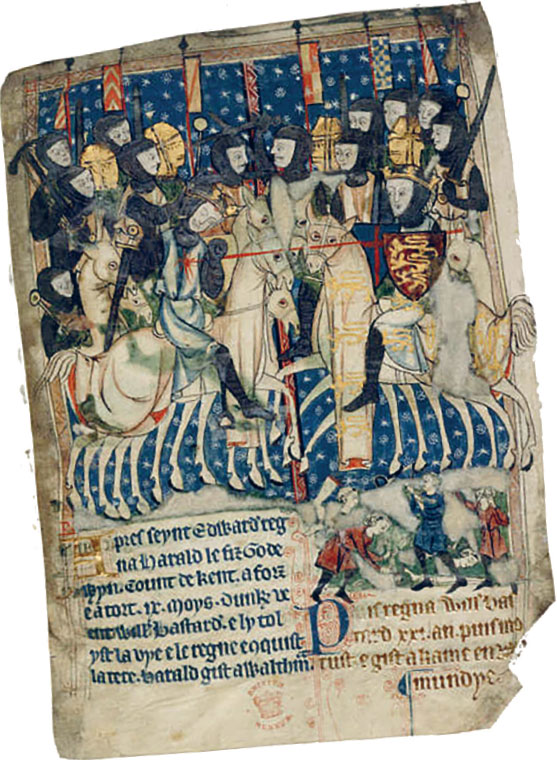 pres seynt Edward reg
na Harald le fiz Gode
wyn. Count de kent. a forz
e a tort. ix. moys. dunk ve
ent Will Bastard. e ly tol
yst la vye e le regne e oquist
la tere. Harald gist a Walthm
Puis regna Will bas
tard xxi. an. puis mo
rust. e gist a kame en nor
mundye.